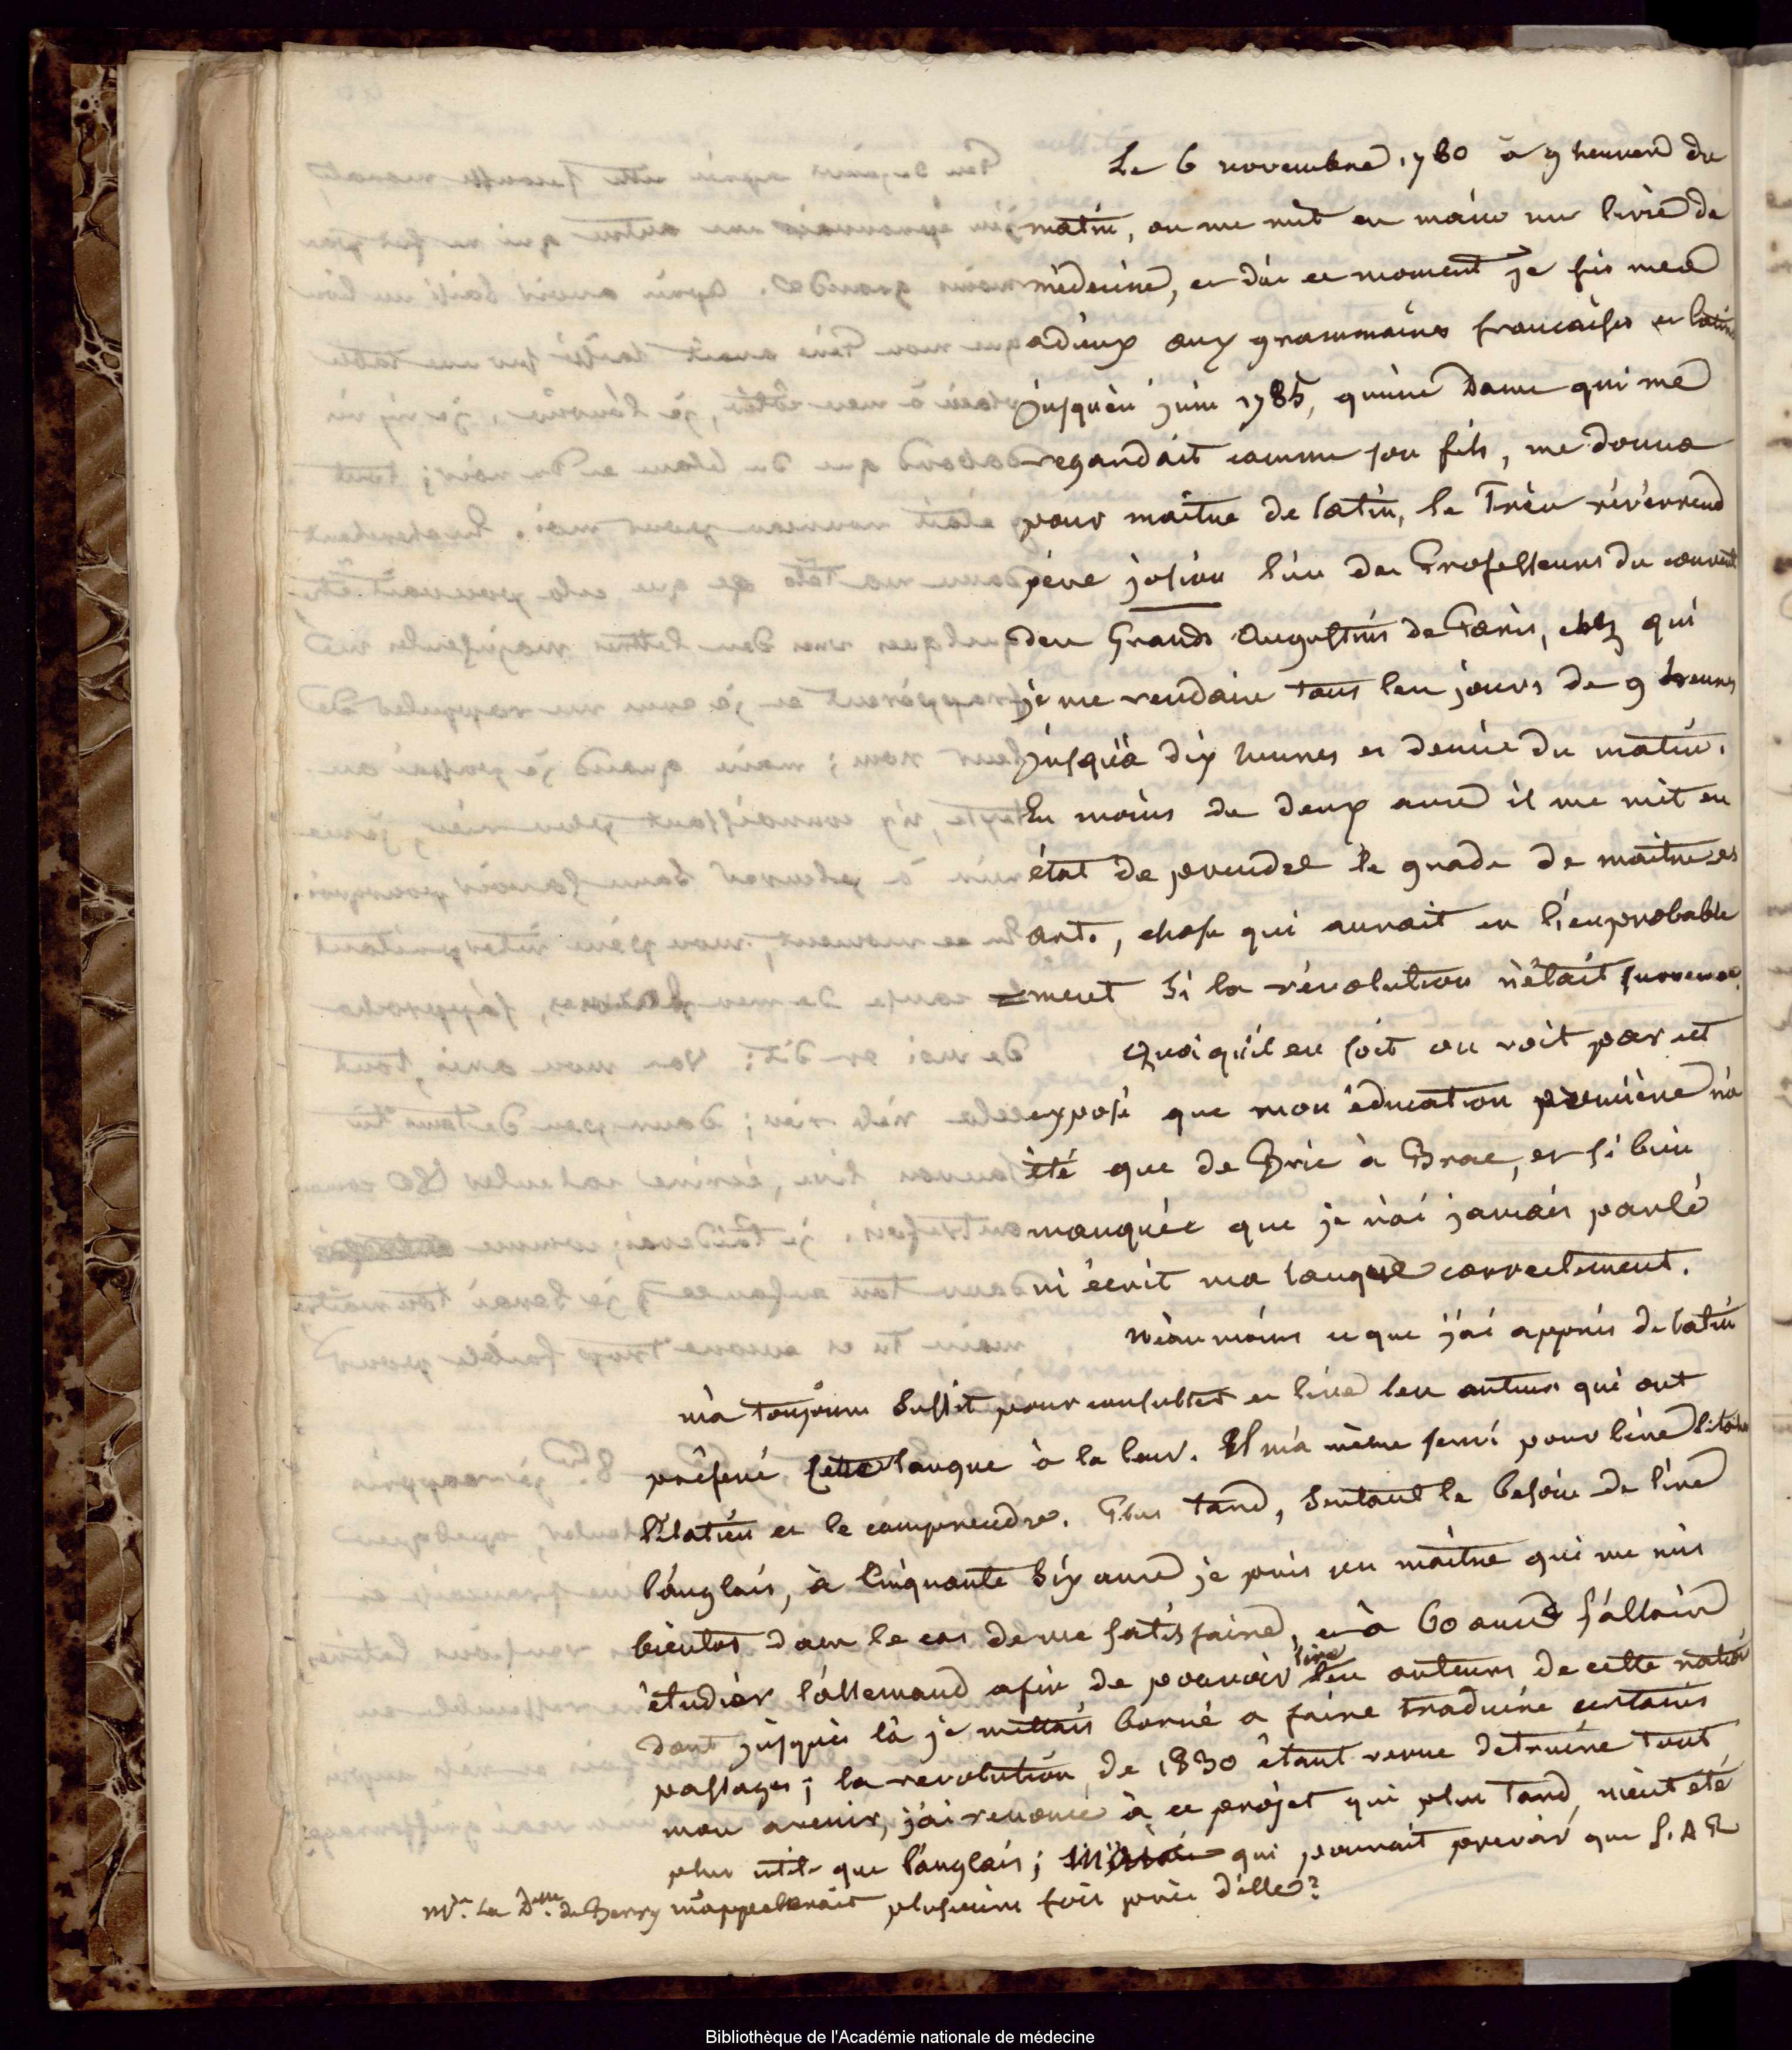 Le 6 novembre 1780 à 9 heures du
matin, on me mit en main un livre de
médecine, et dès ce moment je fis mes
adieux aux grammaires françaises et latines
jusqu'en juin 1785, qu'une Dame qui me
regardait comme son fils, me donna
pour maître de latin, le Très révérrend
père josion l'un des Professeurs du couvent
des Grands Augustins de Paris, chez qui
je me rendais tous les jours de 9 heures
jusqu'à dix heures et demie du matin.
En moins de deux ans il me mit en
état de prendre le grade de maitre es
arts, chose qui aurait eu lieu probable
=ment si la révolution n'était survenue.
Quoiqu'il en soit on voit par cet
exposé que mon éducation première n'a
été que de Bric à Brac, et si bien
manquée que je n'ai jamais parlé
ni écrit ma langue correctement.
Néanmoins ce que j'ai appris de latin
m'a toujours suffit pour consulter et lire les auteurs qui ont
préféré cette langue à la leur. Il m'a même servi pour lire l'italien
et le comprendre. Plus tard, sentant le besoin de lire
l'anglais, à cinquante six ans je pris un maître qui me mis
bientôt dans le cas de me satisfaire, et à 60 ans j'allais
étudier l'allemand afin de pouvoir lire les auteurs de cette nation
dont jusques là je m'étais borné a faire traduire certains
passages; la revolution de 1830 étant venue détruire tout
mon avenir, j'ai renoncé à ce projet qui plus tard m'eut été
plus utile que l'anglais; qui pouvait prévoir que S. A R
Mme. La Dsse. de Berry m'appellerait plusieurs fois près d'elle?
Bibliothèque de l'Académie nationale de médecine